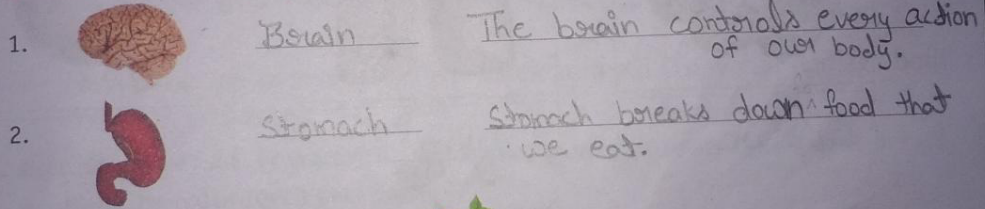 1. Brain The brain controls every action
of our body.
2. Stomach Stomach breaks down food that
we eat.